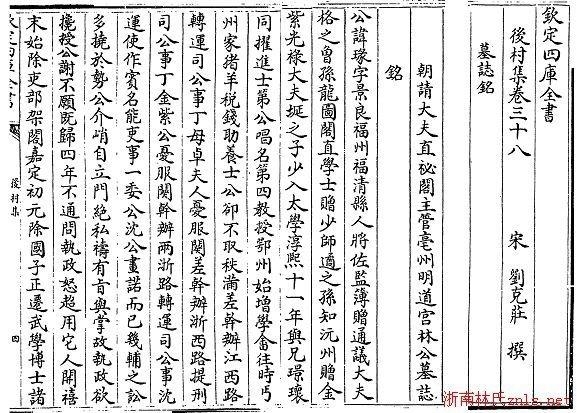 欽定四庫全書
後村集卷三十八
宋 劉克莊 撰
墓誌銘
朝請大夫直祕閣主管亳州明道宮林公墓誌
銘
公諱瑑字景良福州福清縣人將佐監簿贈通議大夫
格之曾孫龍圖閣直學士贈少師遹之孫知沅州贈金
紫光祿大夫埏之子少入太學淳熙十一年與兄璟環
同擢進士第公唱名第四教授鄂州始增學畬徃時丐
州家猪羊税錢助養士公卻不取秩滿差幹辦江西路
轉運司公事丁母卓夫人憂服闋差幹辦浙西路提刑
司公事丁金紫公憂服闋幹辦兩浙路轉運司公事沈
運使作賓名能吏事一委公沈公畫諾而已畿輔之訟
多撓於勢公介峭自立門絶私禱有肯與掌故執政欲
攙授公謝不願既歸四年不通問執政怒超用它人開禧
末始除吏部架閣嘉定初元除國子正遷武學博士諸
後村集
四
浙南林氏znls.net